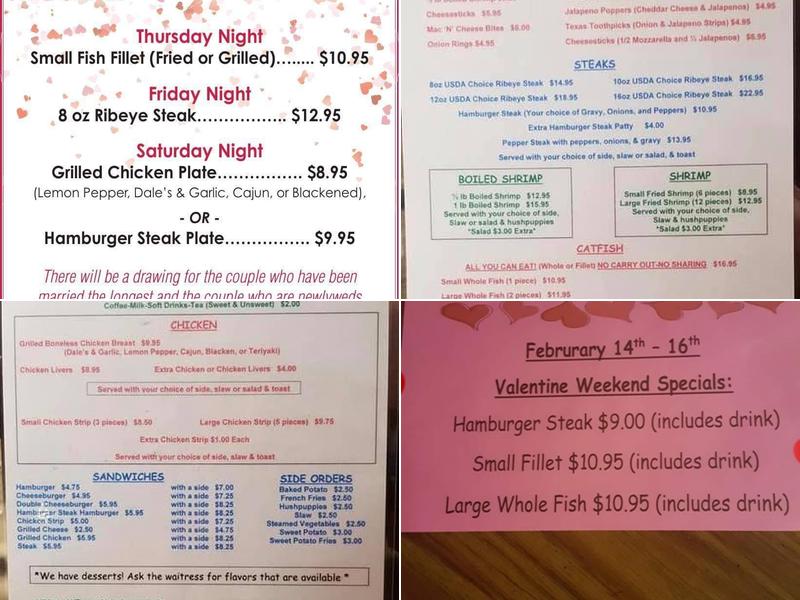 Thursday Night
Small Fish Fillet (Fried or Grilled)…..... $10.95
Friday Night
8 oz Ribeye Steak…………….. $12.95
Saturday Night
Grilled Chicken Plate……………. $8.95
(Lemon Pepper, Dale's & Garlic, Cajun, or Blackened),
- OR -
Hamburger Steak Plate……………. $9.95
There will be a drawing for the couple who have been
married the longest and the couple who are newlyweds
Cheesesticks $5.95
Mac 'N' Cheese Bites $6.00
Onion Rings $4.95
Jalapeno Poppers (Cheddar Cheese & Jalapenos) $4.95
Texas Toothpicks (Onion & Jalapeno Strips) $4.95
Cheesesticks (1/2 Mozzarella and ½ Jalapenos) $6.95
STEAKS
8oz USDA Choice Ribeye Steak $14.95
10oz USDA Choice Ribeye Steak $16.95
12oz USDA Choice Ribeye Steak $18.95
16oz USDA Choice Ribeye Steak $22.95
Hamburger Steak (Your choice of Gravy, Onions, and Peppers) $10.95
Extra Hamburger Steak Patty $4.00
Pepper Steak with peppers, onions, & gravy $13.95
Served with your choice of side, slaw or salad, & toast
BOILED SHRIMP
½ lb Boiled Shrimp $12.95
1 lb Boiled Shrimp $15.95
Served with your choice of side,
Slaw or salad & hushpuppies
*Salad $3.00 Extra*
SHRIMP
Small Fried Shrimp (6 pieces) $8.95
Large Fried Shrimp (12 pieces) $12.95
Served with your choice of side,
Slaw & hushpuppies
*Salad $3.00 Extra*
CATFISH
ALL YOU CAN EAT! (Whole or Fillet) NO CARRY OUT-NO SHARING $16.95
Small Whole Fish (1 piece) $10.95
Large Whole Fish (2 pieces) $11.95
Coffee-Milk-Soft Drinks-Tea (Sweet & Unsweet) $2.00
CHICKEN
Grilled Boneless Chicken Breast $9.95
(Dale's & Garlic, Lemon Pepper, Cajun, Blacken, or Teriyaki)
Chicken Livers $8.95
Extra Chicken or Chicken Livers $4.00
Served with your choice of side, slaw or salad & toast
Small Chicken Strip (3 pieces) $8.50
Large Chicken Strip (5 pieces) $9.75
Extra Chicken Strip $1.00 Each
Served with your choice of side, slaw & toast
SANDWICHES
Hamburger $4.75 with a side $7.00
Cheeseburger $4.95 with a side $7.25
Double Cheeseburger $5.95 with a side $8.25
Hamburger Steak Hamburger $5.95 with a side $8.25
Chicken Strip $5.00 with a side $7.25
Grilled Cheese $2.50 with a side $4.75
Grilled Chicken $5.95 with a side $8.25
Steak $5.95 with a side $8.25
SIDE ORDERS
Baked Potato $2.50
French Fries $2.50
Hushpuppies $2.50
Slaw $2.50
Steamed Vegetables $2.50
Sweet Potato $3.00
Sweet Potato Fries $3.00
*We have desserts! Ask the waitress for flavors that are available *
Februrary 14th - 16th
Valentine Weekend Specials:
Hamburger Steak $9.00 (includes drink)
Small Fillet $10.95 (includes drink)
Large Whole Fish $10.95 (includes drink)